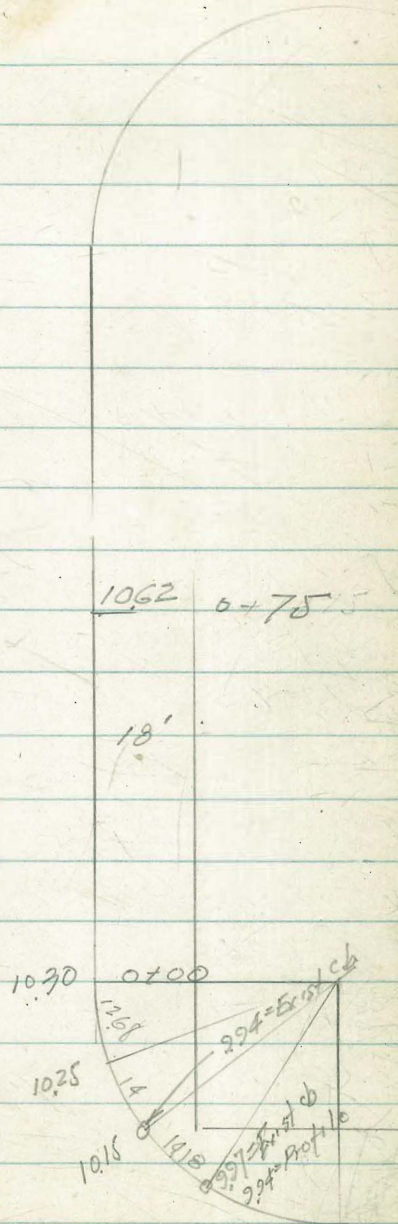 10.62 0+75
18'
10.30 0+00
12.68
9.94=Exist cb
10.25
14
14.18
10.15
9.97=Exist cb
9.94=Profile